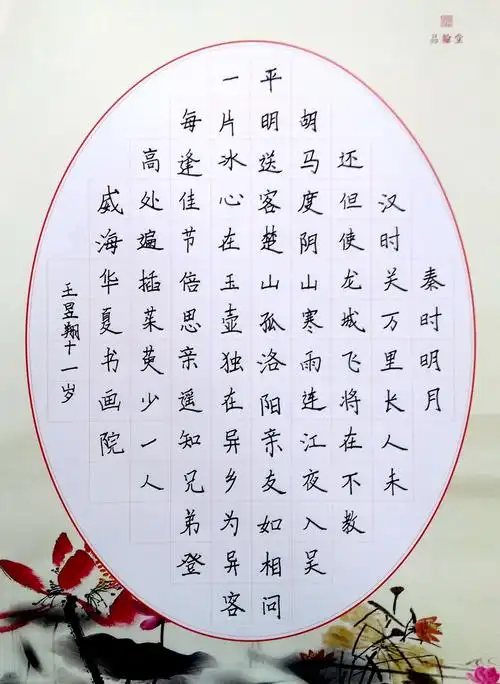 品翰堂
秦时明月
汉时关万里长人未
还但使龙城飞将在不教
胡马度阴山寒雨连江夜入吴
平明送客楚山孤洛阳亲友如相问
一片冰心在玉壶独在异乡为异客
每逢佳节倍思亲遥知兄弟登
高处遍插茱萸少一人
威海华夏书画院
王昱翔十一岁